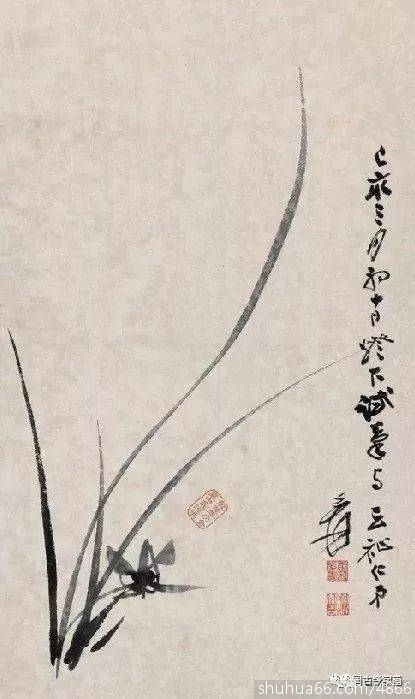 己亥三月初十日燈下試毫与云祉仁弟
爰
shuhua66.com/4866